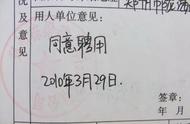 况及意见
用人单位意见:
同意聘用
2010年3月29日.
签章:
年 月